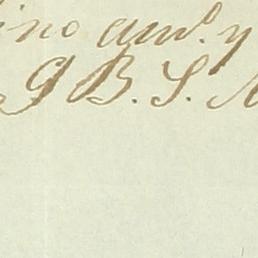 ino amo. y
G B. S. M